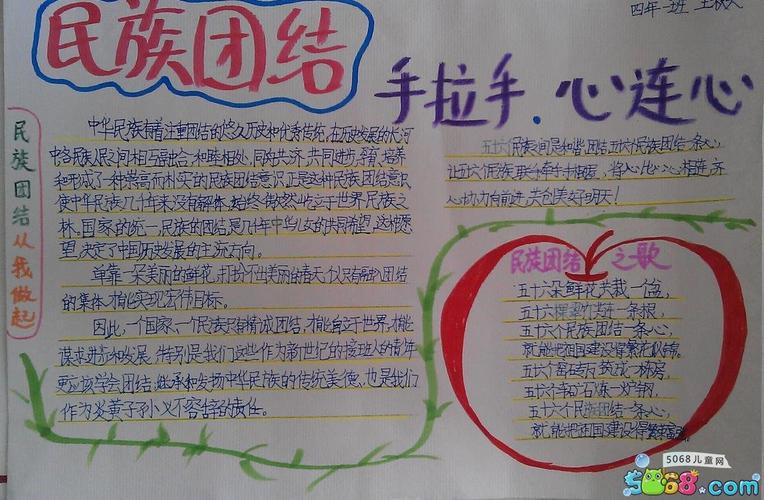 四年一班 王秋人
民族团结
手拉手.心连心
民族团结从我做起
中华民族有着注重团结的悠久历史和优秀传统,在历史发展的长河
中各民族人民之间相互融合,和睦相处,同舟共济,共同进步,孕育,培养
和形成了一种崇高而朴实的民族团结意识,正是这种民族团结意识
使中华民族几千年来没有解体,始终傲然屹立于世界民族之
林,国家的统一,民族的团结是几千年中华儿女的共同希望,这种愿
望,决定了中国历史发展的主流方向。
单靠一朵美丽的鲜花,打扮不出美丽的春天,仅只有融入团结
的集体,才能实现宏伟目标。
因此,一个国家、一个民族只有精诚团结,才能自立于世界,才能
谋求进步和发展,特别是我们这些作为新世纪的接班人的青年
更应该学会团结,继承和发扬中华民族的传统美德,也是我们
作为炎黄子孙义不容辞的责任。
五十六个民族间是和谐团结,五十六个民族团结一条心,
让五十六个民族联合牵手十相暖,将心比心心相连,齐
心协力向前进,共创美好明天!
民族团结 之歌
五十六朵鲜花共栽一个盆,
五十六棵翠竹共连一条根,
五十六个民族团结一条心,
就能把祖国建设得繁花似锦。
五十六窑砖瓦筑成一栋房,
五十六车矿石炼一炉钢,
五十六个民族团结一条心,
就能把祖国建设得繁荣富强。
5068儿童网
5068.com